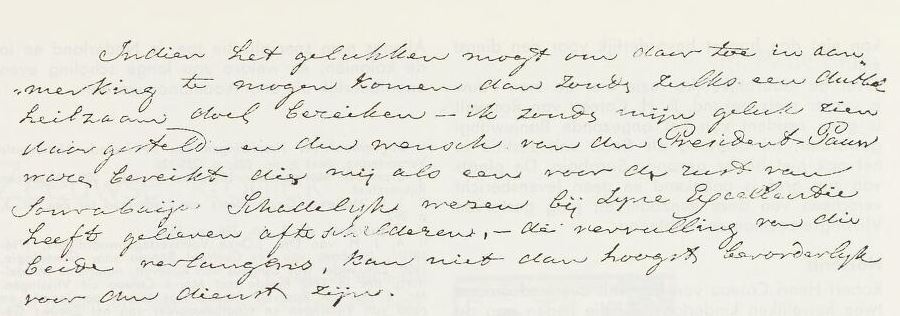 Indien het gelukken mogt om daar toe in aan„
„merking te mogen komen dan zoude zulks een dubbel
heilzaam doel bereiken – ik zoude mijn geluk zien
daar gesteld – en den wensch van den President Pauw
ware bereikt die mij als een voor de rust van
Sourabaija Schadelijk wezen bij Zijne Excellentie
heeft gelieven afteschilderen, – de vervulling van die
beide verlangens, kan niet dan hoogst bevorderlijk
voor den dienst zijn.